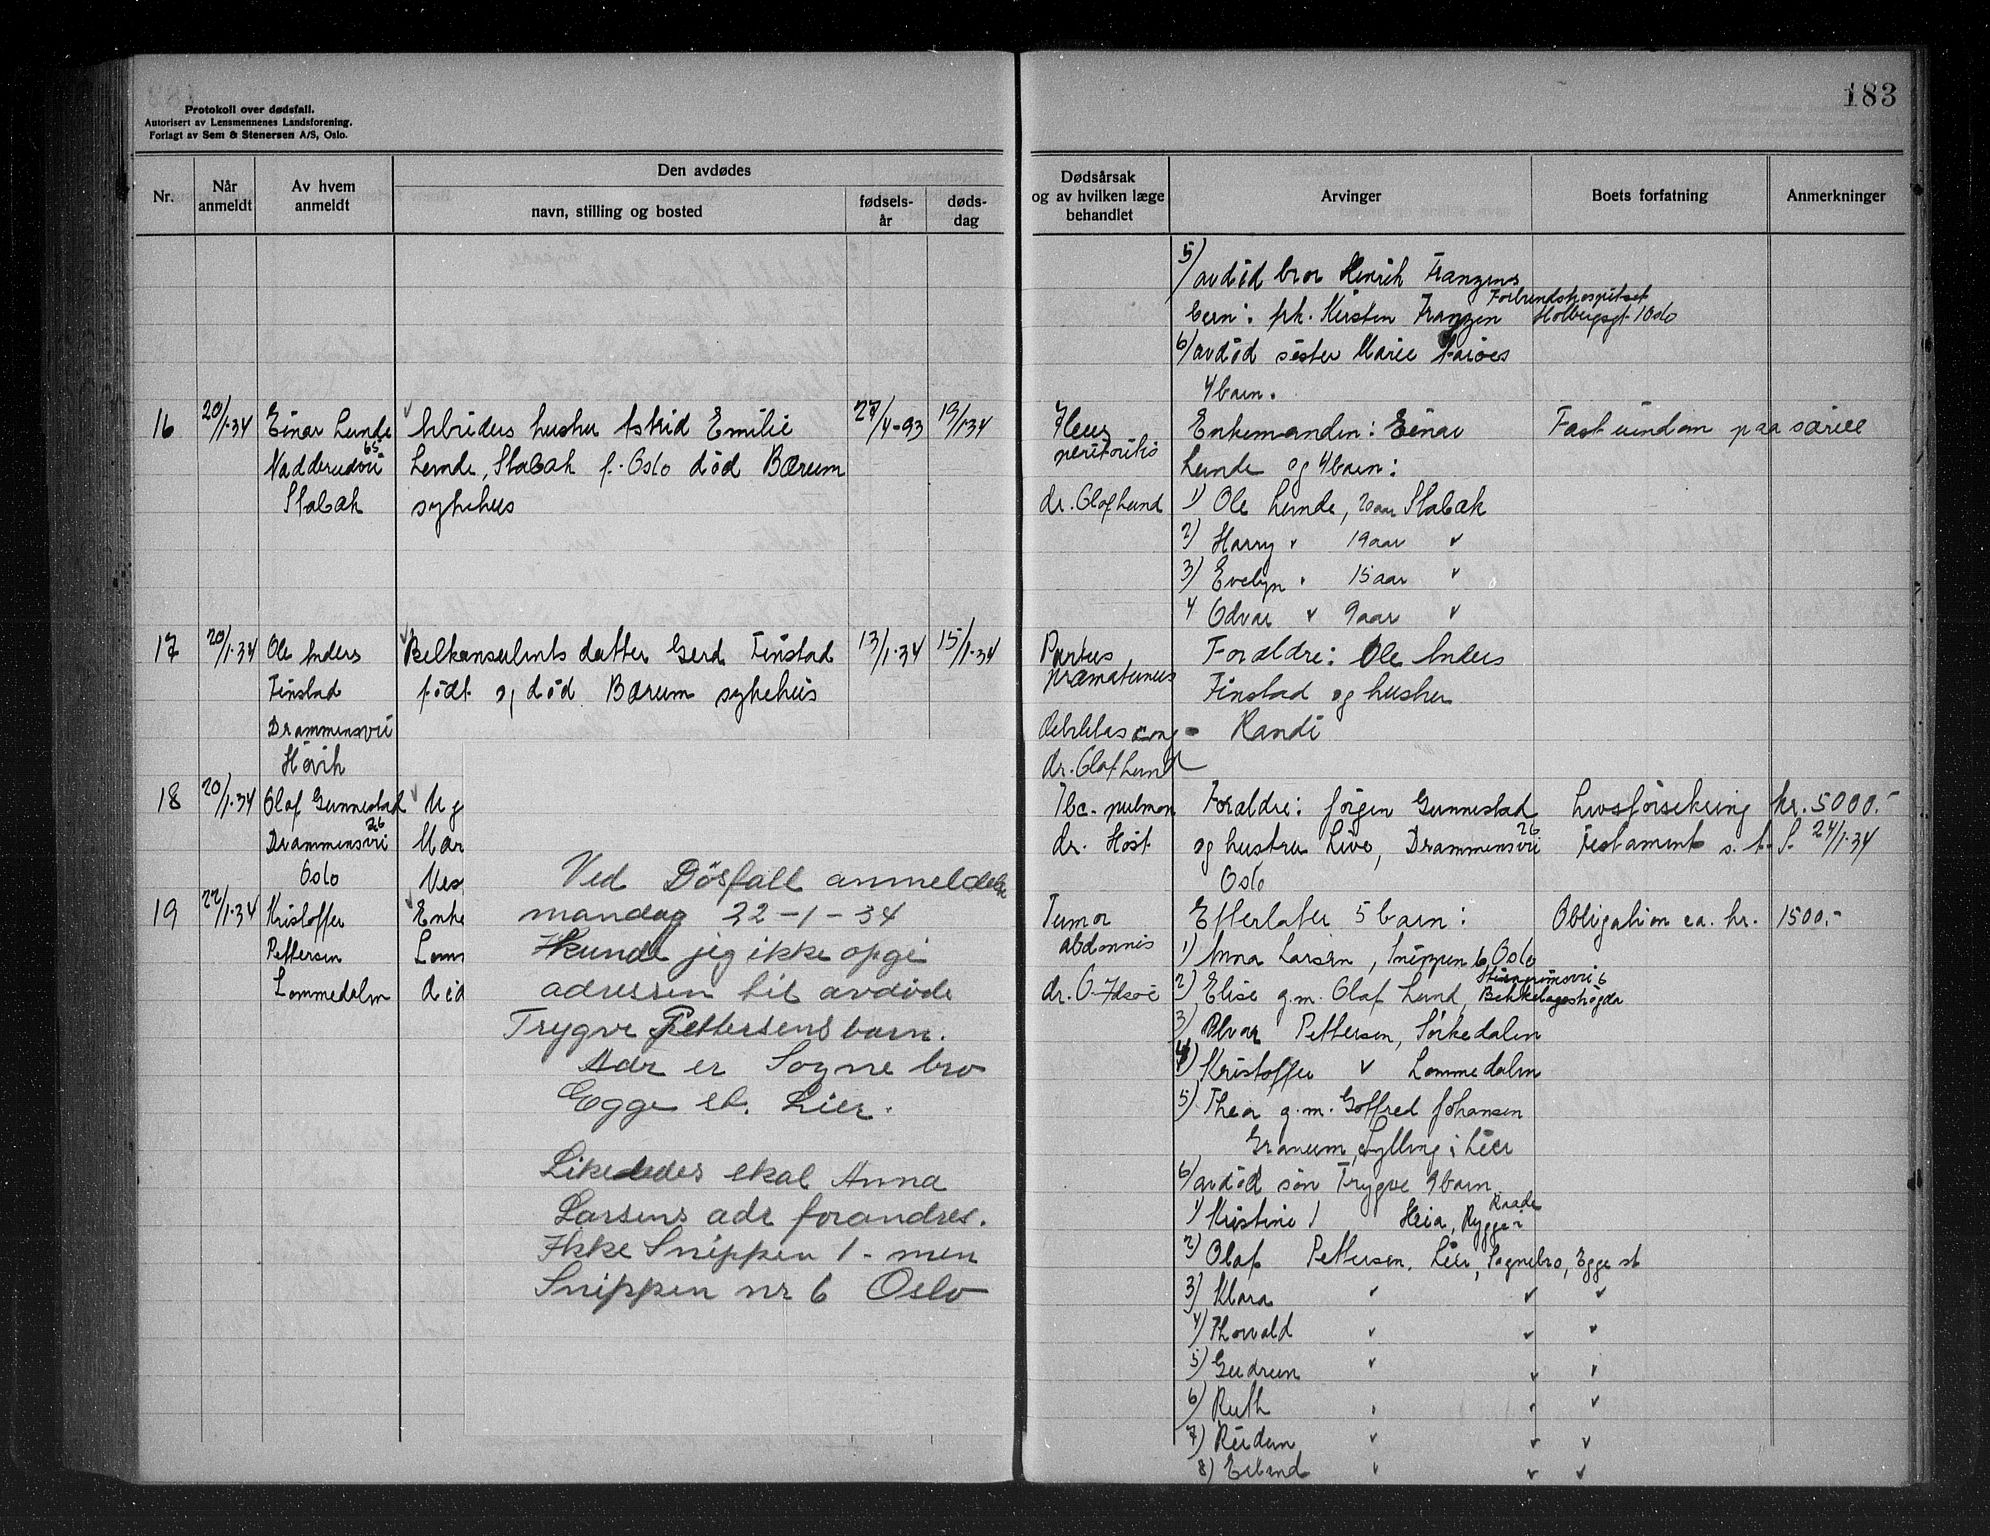 Protokoll over dødsfall.
Autorisert av Lensmennenes Landsforening.
Forlagt av Sem & Stenersen A/S, Oslo.
Nr.
Når anmeldt
Av hvem anmeldt
Den avdødes
navn, stilling og bosted
fødsels-år
døds-dag
16
20/1-34
Einar Lunde
Nadderudvei 65
Stabæk
Arbeiders hustru Astrid Emilie
Lunde, Stabæk f. Oslo død Bærum
sykehus
27/4-93
19/1-34
17
20/1-34
Ole Anders
Finstad
Drammensvei
Høvik
Belkonsulents datter Gerd Finstad
født og død Bærum sykehus
13/1-34
15/1-34
18
20/1-34
Olaf Gunnestad
Drammensvei 26
Oslo
Ug
Mar
Ves
19
22/1-34
Kristoffer
Pettersen
Lommedalen
Enke
Lom
død
Ved Dösfall anmeldelse
mandag 22-1-34
kunde jeg ikke opgi
adressen til avdøde
Trygve Pettersens barn.
Adr er Sogne bro
Egge st. Lier.
Likeledes skal Anna
Larsens adr forandres.
Ikke Snippen 1 - men
Snippen nr 6 Oslo
183
Dødsårsak
og av hvilken læge
behandlet
Arvinger
Boets forfatning
Anmerkninger
5/ avdød bror Henrik Franzens
barn: frk. Kirsten Franzen Forbundshospitset Holbergsgt. 1 Oslo
6/ avdød søster Marie
4 barn.
Ileus
peritoritis
dr. Olaf Lund
Enkemanden: Einar
Lunde og 4 barn:
1) Ole Lunde, 20 aar Stabæk
2) Harry " 19 aar "
3) Evelyn " 15 aar "
4 Odvar " 9 aar "
Fast eiendom paa særeie
Partus
præmaturus
Debilitas cong
dr. Olaf Lund
Forældre: Ole Anders
Finstad og hustru
Randi
Tbc. pulmon
dr. Høst
Forældre: Jørgen Gunnestad
og hustru Live, Drammensvei 26
Oslo
Livsforsikring kr. 5000.-
Testament s. t. S. 24/1-34
Tumor
abdomnis
dr. O.
Efterlater 5 barn:
1) Anna Larsen, Snippen 6 Oslo
2) Elise g.m. Olaf Lund, Bekkelagshøgda
3) Alvar Pettersen, Sørkedalen
4) Kristoffer " Lommedalen
5) Thea g.m. Gotfred Johansen
Granum, Sylling i Lier
6/ avdød søn Trygve 9 barn
1) Kristine / Heia, Rygge i Raade
2) Olaf Pettersen. Lier, Sognebro, Egge st
3) Klara " " "
4) Thorvald " " "
5) Gudrun " " "
6) Ruth " " "
7) Reidun " " "
8) Erland " " "
Obligation ca. kr. 1500.-